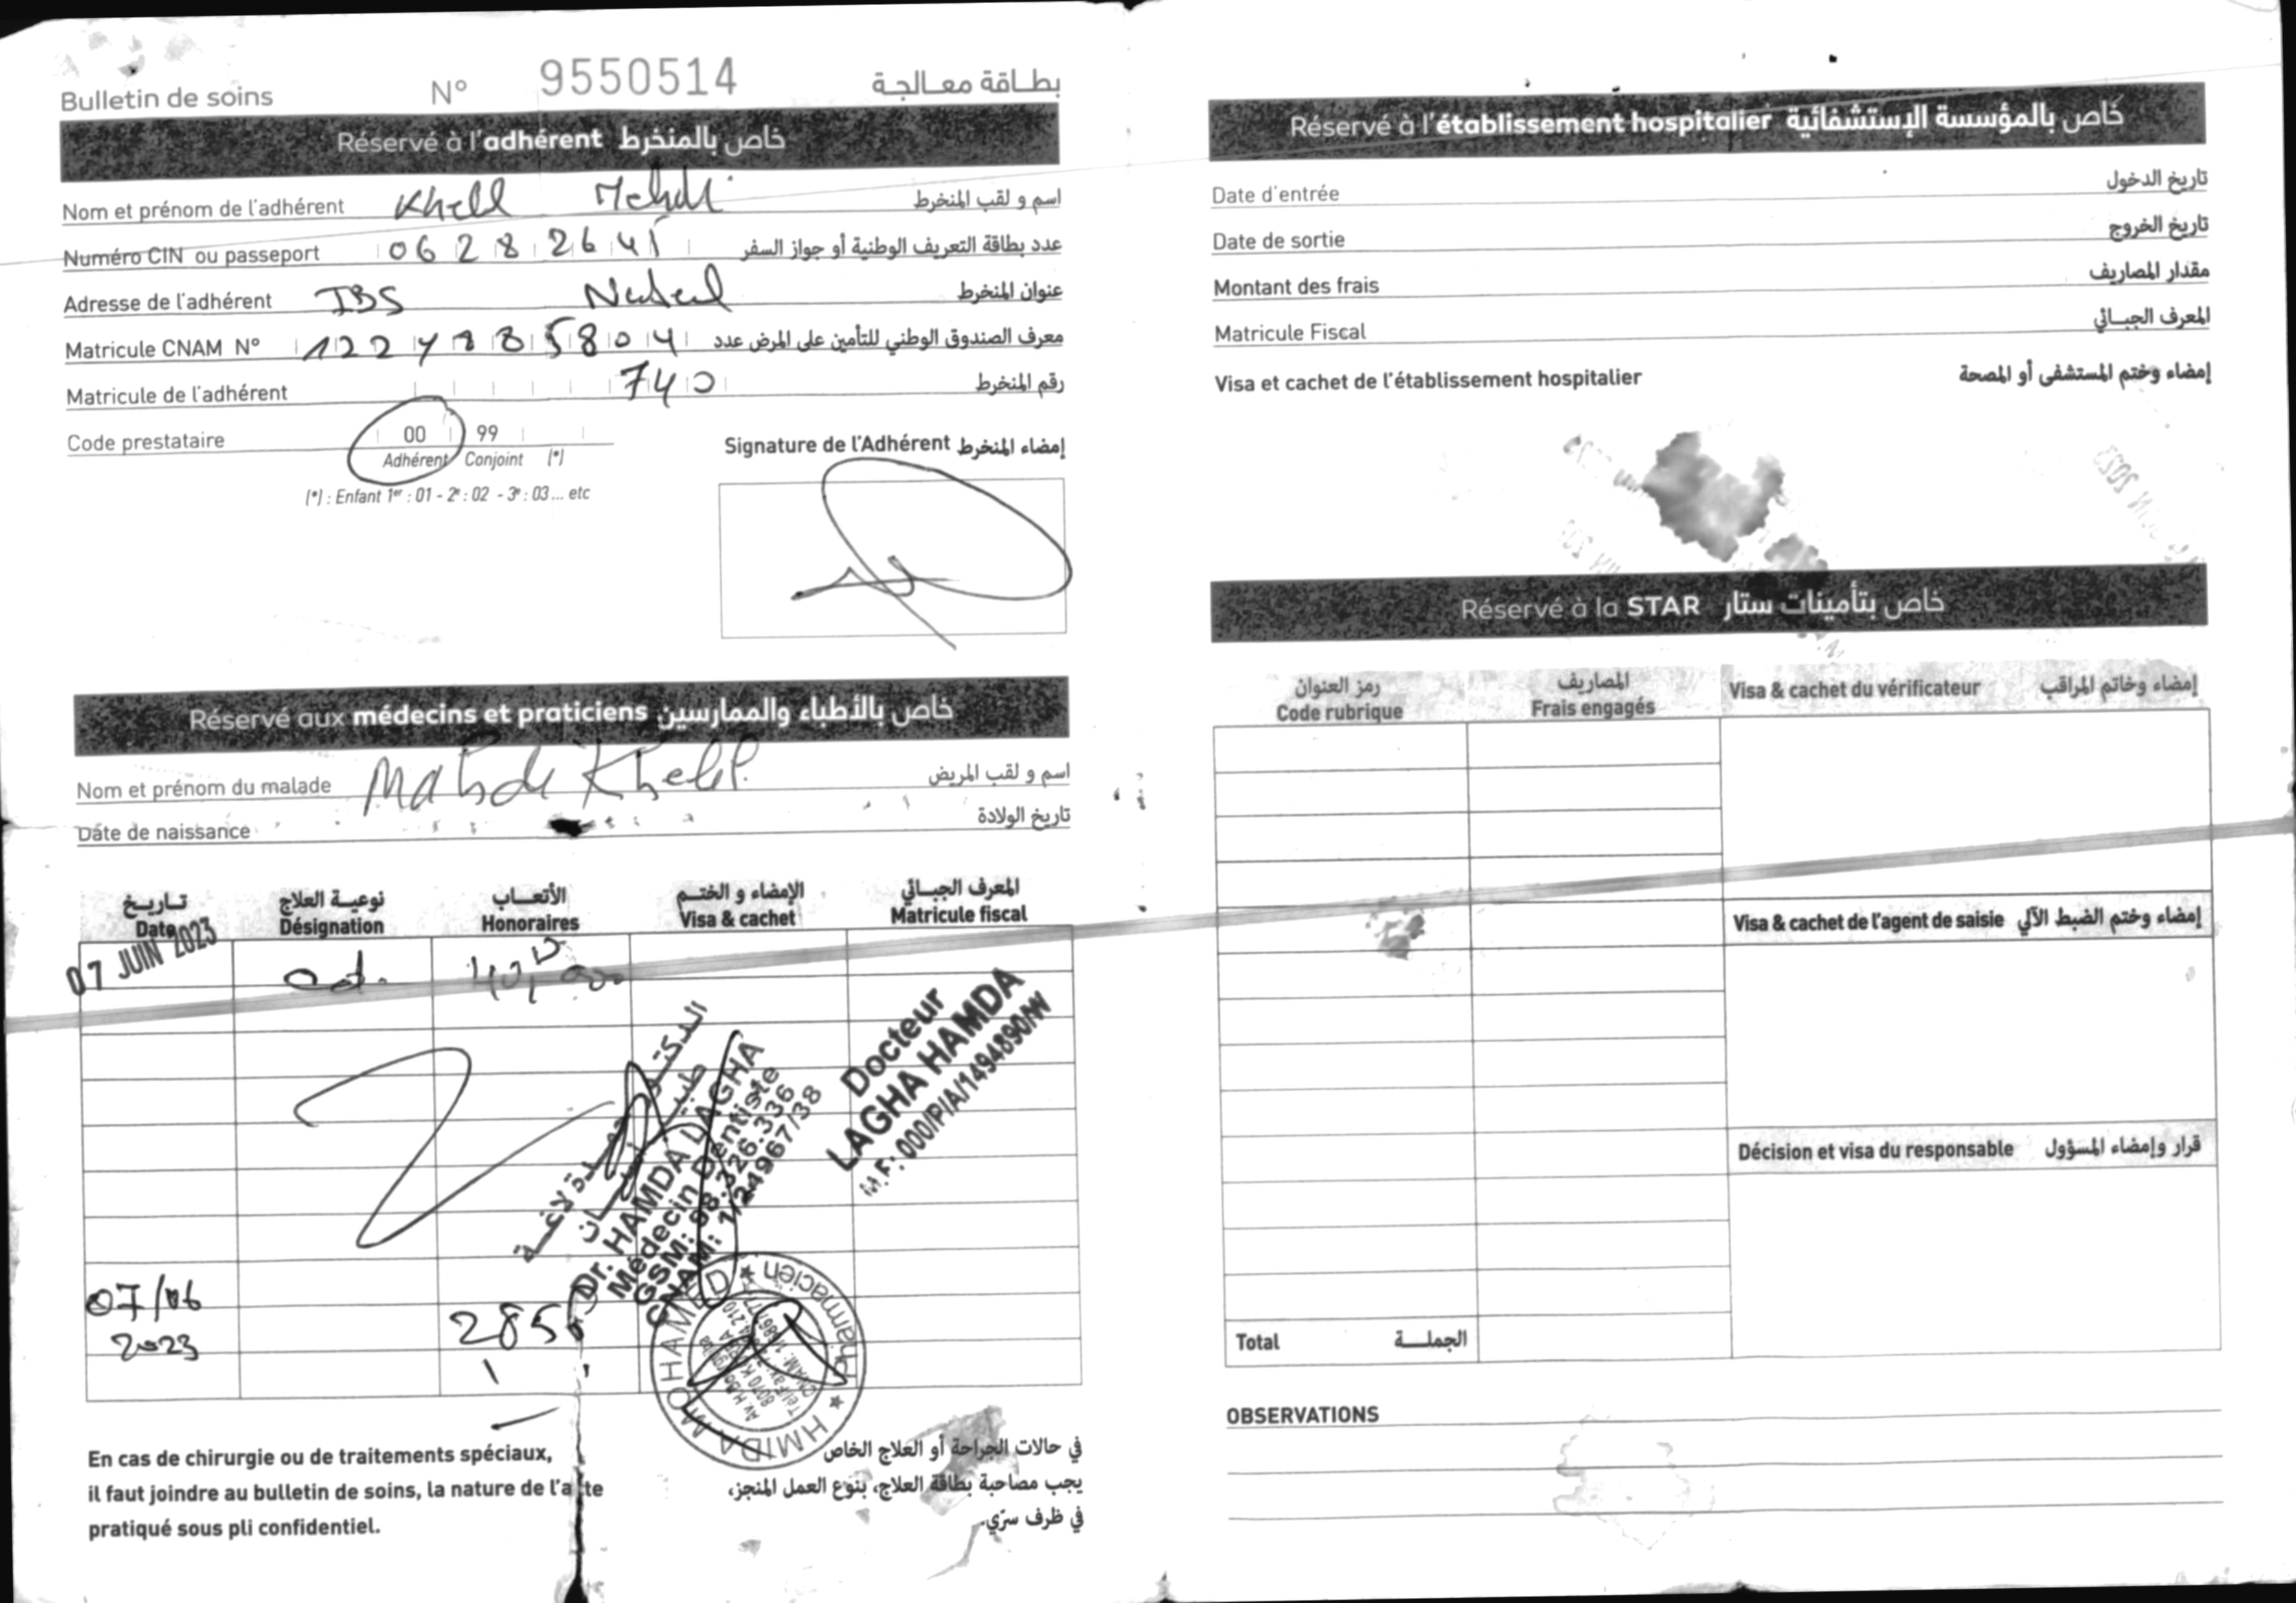 Bulletin de soins N° 9550514 بطاقة معالجة
Réservé à l'adhérent خاص بالمنخرط
Nom et prénom de l'adhérent Khelil Mehdi اسم و لقب المنخرط
Numéro CIN ou passeport 06282641 عدد بطاقة التعريف الوطنية أو جواز السفر
Adresse de l'adhérent IBS عنوان المنخرط
Matricule CNAM N° معرف الصندوق الوطني للتأمين على المرض عدد
Matricule de l'adhérent 740 رقم المنخرط
Code prestataire 00 99
Adhérent Conjoint (*)
(*) : Enfant 1er : 01 - 2e : 02 - 3e : 03 ... etc
Signature de l'Adhérent إمضاء المنخرط
Réservé aux médecins et praticiens خاص بالأطباء والممارسين
Nom et prénom du malade Mahdi Khelil اسم و لقب المريض
Date de naissance تاريخ الولادة
تاريخ نوعية العلاج الأتعاب الإمضاء و الختم المعرف الجبائي
Date Désignation Honoraires Visa & cachet Matricule fiscal
07 JUIN 2023
الدكتور حمدة لاغة
طبيب أسنان
Dr. HAMDA LAGHA
Médecin Dentiste
GSM: 98.326.336
CNAM: 1/24967/38
Docteur
LAGHA HAMDA
M.F: 000/P/A/1494890/W
07/06
2023
285
HMIDA MOHAMED ★ Pharmacien ★
En cas de chirurgie ou de traitements spéciaux,
il faut joindre au bulletin de soins, la nature de l'acte
pratiqué sous pli confidentiel.
في حالات الجراحة أو العلاج الخاص
يجب مصاحبة بطاقة العلاج، بنوع العمل المنجز،
في ظرف سرّي.
Réservé à l'établissement hospitalier خاص بالمؤسسة الإستشفائية
Date d'entrée تاريخ الدخول
Date de sortie تاريخ الخروج
Montant des frais مقدار المصاريف
Matricule Fiscal المعرف الجبائي
Visa et cachet de l'établissement hospitalier إمضاء وختم المستشفى أو المصحة
Réservé à la STAR خاص بتأمينات ستار
رمز العنوان المصاريف
Code rubrique Frais engagés
Visa & cachet du vérificateur إمضاء وخاتم المراقب
Visa & cachet de l'agent de saisie إمضاء وختم الضبط الآلي
Décision et visa du responsable قرار وإمضاء المسؤول
Total الجملة
OBSERVATIONS